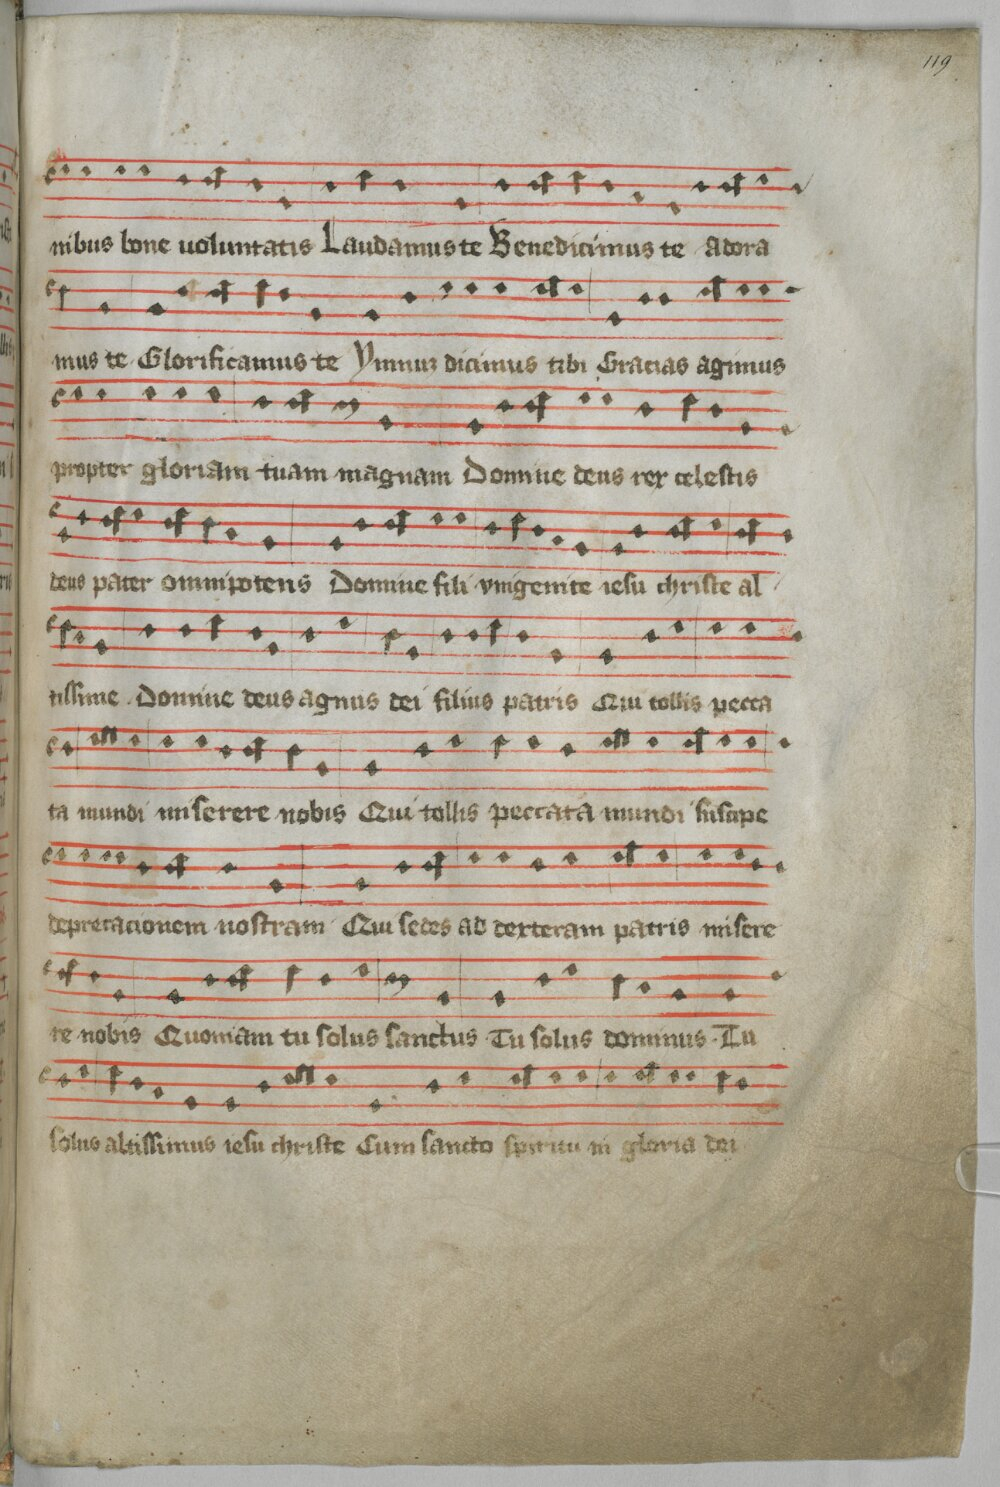 119
nibus bone uoluntatis Laudamus te Benedicimus te Adora
mus te Glorificamus te Ymnuz dicimus tibi Gracias agimus
propter gloriam tuam magnam Domine deus rex celestis
deus pater omnipotens Domine fili vnigenite iesu christe al
tissime Domine deus agnus dei filius patris Qui tollis pecca
ta mundi miserere nobis Qui tollis peccata mundi suscipe
deprecacionem nostram Qui sedes ad dexteram patris misere
re nobis Quoniam tu solus sanctus Tu solus dominus Tu
solus altissimus iesu christe Cum sancto spiritu in gloria dei